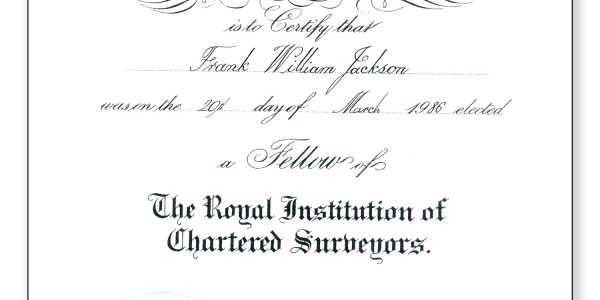 is to Certify that
Frank William Jackson
was on the 20th day of March 1986 elected
a Fellow of
The Royal Institution of
Chartered Surveyors.